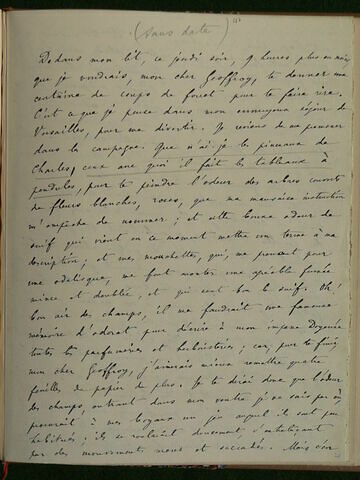 (Sans date)
Dedans mon lit, ce jeudi soir, 9 heures plus ou moins
que je voudrais, mon cher Geoffroy, te donner une
centaine de coups de fouet pour te faire rire.
C'est à quoi je pense dans mon ennuyeux séjour de
Versailles, pour me divertir. Je reviens de me promener
dans la campagne. Que n'ai-je le pinceau de
Charles, avec quoi il fait les tableaux à
pendules, pour te peindre l'odeur des arbres couverts
de fleurs blanches, roses, que ma mauvaise instruction
m'empêche de nommer; et cette bonne odeur de
suif qui vient en ce moment mettre un terme à ma
description; et mes mouchettes, qui, me prenant pour
une odalisque, me font monter une agréable fumée
mince et doublée, et qui sent bon le suif. Oh!
bon air des champs, il me faudrait une fameuse
mémoire d'odorat pour décrire à mon
toutes les parfumeries et herboristeries; car, pour te finir
mon cher Geoffroy, j'aimerais mieux remettre quatre
feuilles de papier de plus. Je te dirai donc que l'odeur
des champs, entrant dans mon ventre, je ne sais par où
procurait à mes boyaux un jeu auquel ils sont peu
habitués; ils se roulaient doucement, s'
par des mouvements mous et saccadés. Mais c'est